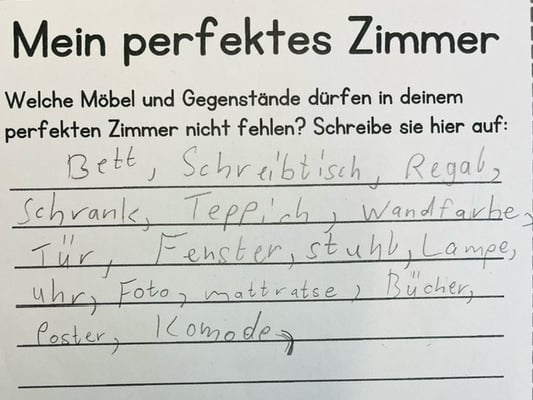 Mein perfektes Zimmer
Welche Möbel und Gegenstände dürfen in deinem
perfekten Zimmer nicht fehlen? Schreibe sie hier auf:
Bett, Schreibtisch, Regal,
Schrank, Teppich, Wandfarbe,
Tür, Fenster, stuhl, Lampe,
uhr, Foto, mattratse, Bücher,
Poster, Komode,